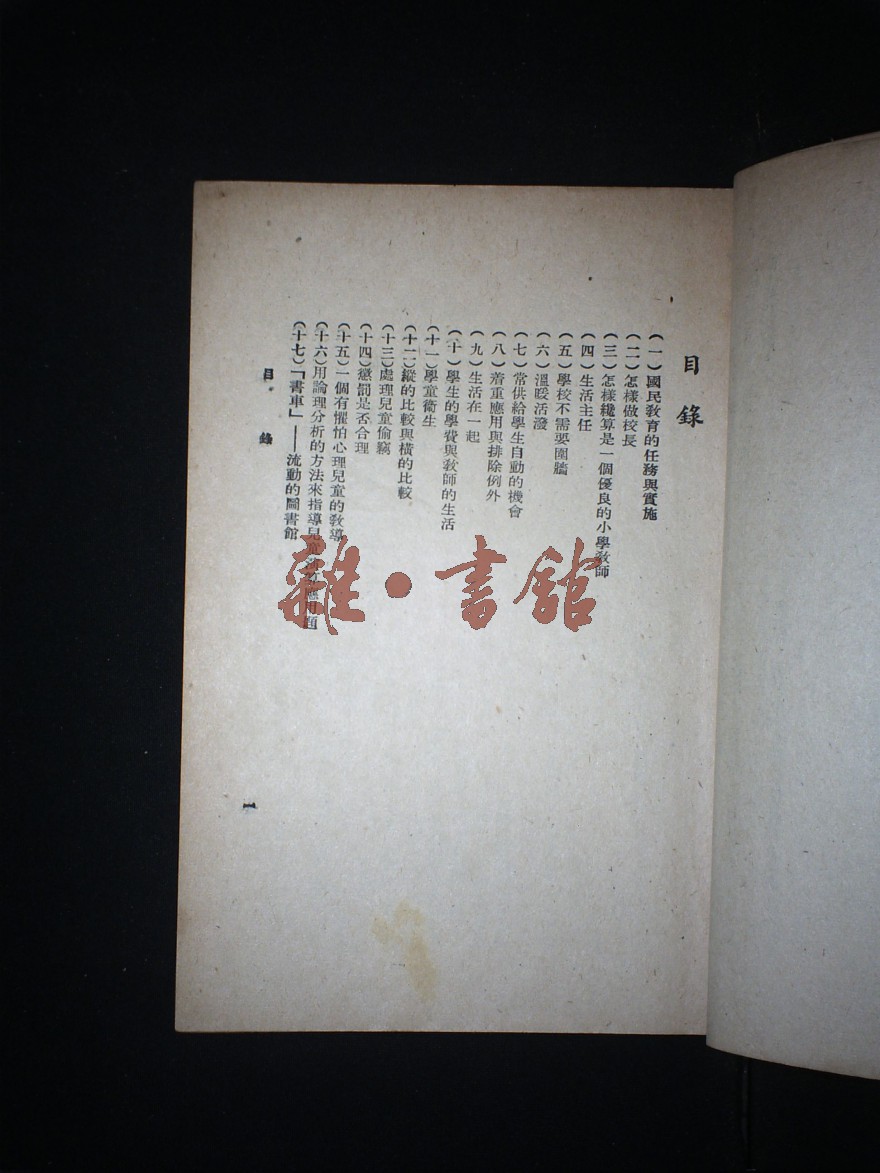 目錄
(一)國民教育的任務與實施
(二)怎樣做校長
(三)怎樣纔算是一個優良的小學教師
(四)生活主任
(五)學校不需要圍牆
(六)溫暖活潑
(七)常供給學生自動的機會
(八)着重應用與排除例外
(九)生活在一起
(十)學生的學費與教師的生活
(十一)學童衞生
(十二)縱的比較與橫的比較
(十三)處理兒童偷竊
(十四)懲罰是否合理
(十五)一個有懼怕心理兒童的教導
(十六)用論理分析的方法來指導兒童演算應用題
(十七)「書車」——流動的圖書館
目錄
一
雜·書館